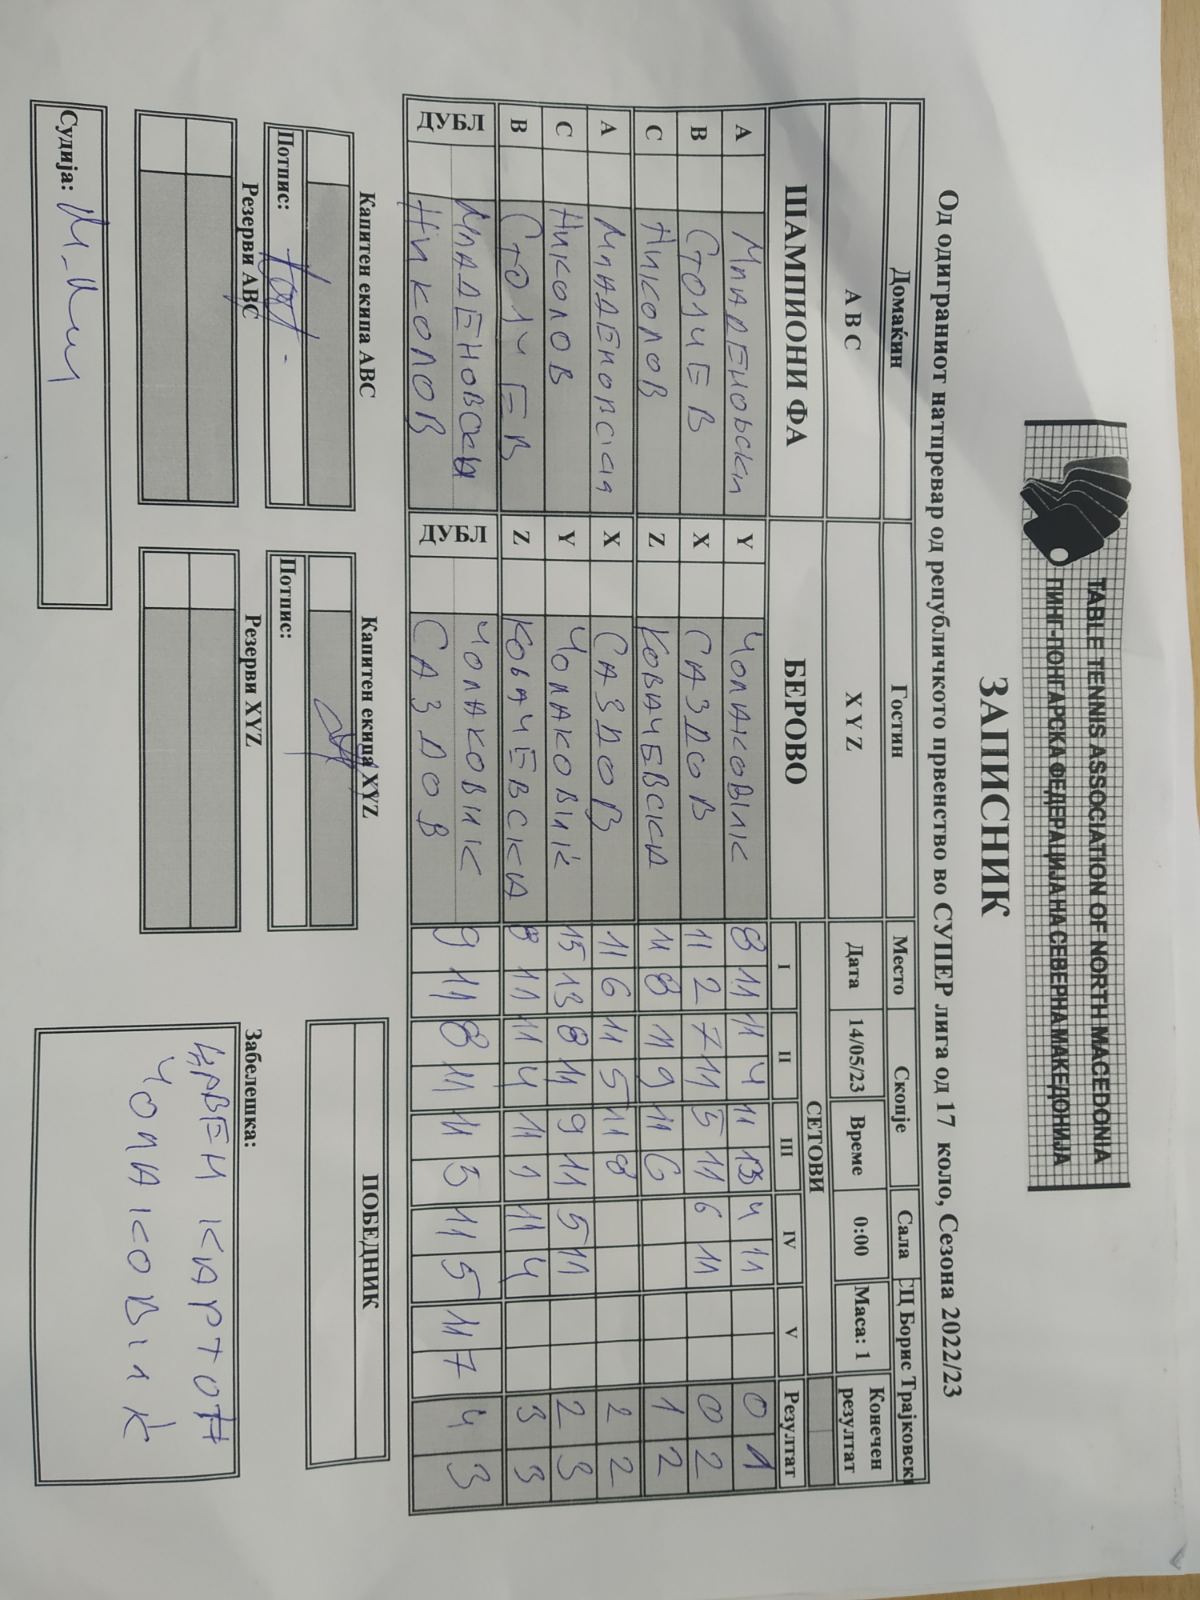 TABLE TENNIS ASSOCIATION OF NORTH MACEDONIA
ПИНГ-ПОНГАРСКА ФЕДЕРАЦИЈА НА СЕВЕРНА МАКЕДОНИЈА
ЗАПИСНИК
Од одиграниот натпревар од републичкото првенство во СУПЕР лига од 17 коло, Сезона 2022/23
Домаќин Гостин Место Скопје Сала СЦ Борис Трајковски
А В С X Y Z Дата 14/05/23 Време 0:00 Маса: 1 Конечен резултат
ШАМПИОНИ ФА БЕРОВО СЕТОВИ
I II III IV V Резултат
A Младеновски Y Чолаковиќ 8 11 11 4 11 13 4 11 0 1
B СТОЛЧЕВ X САЗДОВ 11 2 7 11 5 11 6 11 0 2
C НИКОЛОВ Z КОВАЧЕВСКА 11 8 11 9 11 6 1 2
A МЛАДЕНОВСКИ X САЗДОВ 11 6 11 5 11 8 2 2
C НИКОЛОВ Y ЧОЛАКОВИЌ 15 13 8 11 9 11 5 11 2 3
B СТОЛЧЕВ Z КОВАЧЕВСКА 8 11 11 4 11 1 11 4 3 3
ДУБЛ МЛАДЕНОВСКИ ДУБЛ ЧОЛАКОВИК 9 11 8 11 11 5 11 5 11 7 4 3
НИКОЛОВ САЗДОВ
Капитен екипа АВС Капитен екипа XYZ ПОБЕДНИК
Потпис: Потпис:
Резерви АВС Резерви XYZ Забелешка:
ЦРВЕН КАРТОН
ЧОЛАКОВИЌ
Судија: